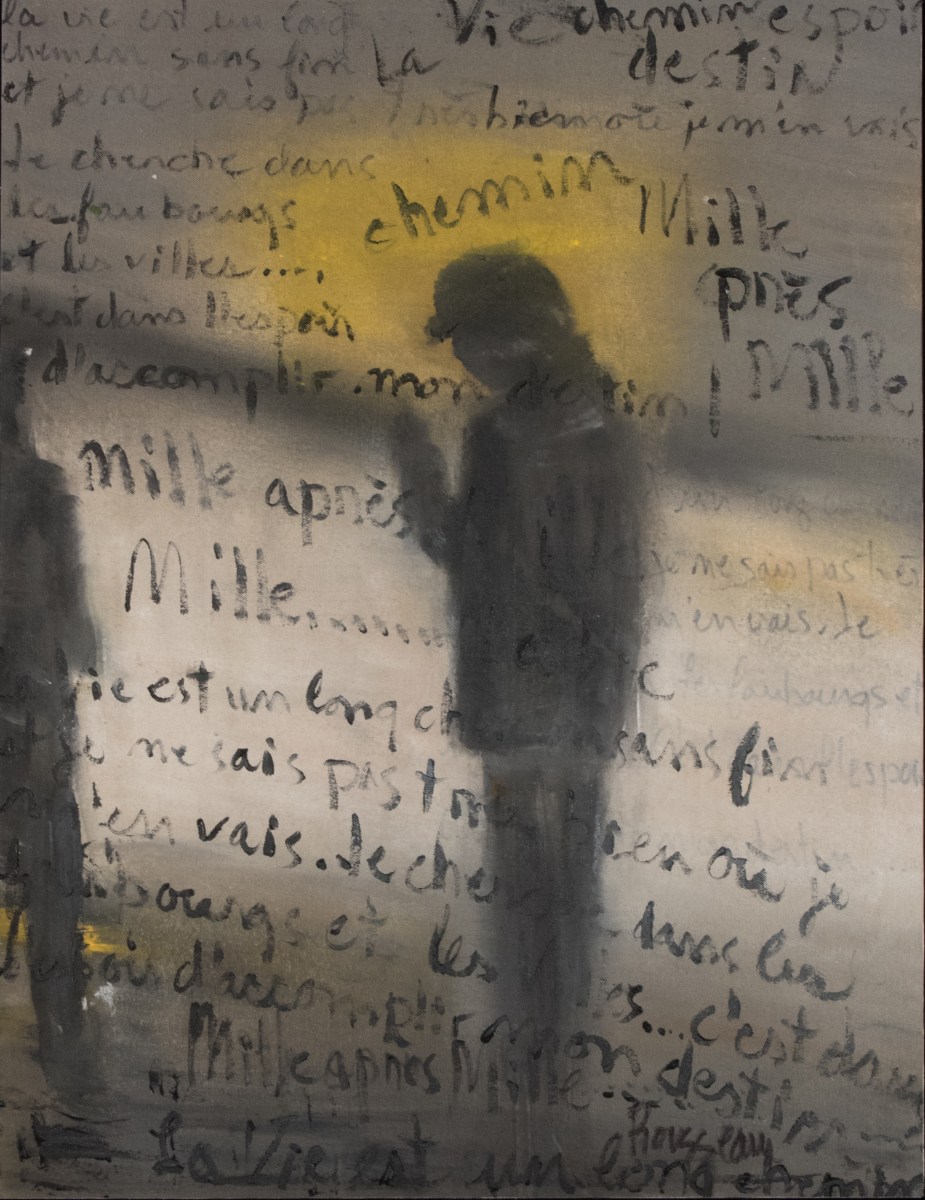 la vie est un long Vie chemin espoir
chemin sans fin La destin
et je ne sais pas très bien où je m'en vais
Je cherche dans
les faubourgs chemin Mille
et les villes...., après
c'est dans l'espoir Mille
d'accomplir mon destin
Mille après
Mille..........
un long
je ne sais pas très
m'en vais. Je
faubourgs et
la vie est un long ch sans fin l'espoir
et je ne sais pas très bien où je
m'en vais. Je cherche dans les
faubourgs et les villes... c'est dans
l'espoir d'accomplir mon destin
Mille après Mille
La Vie est un long chemin
Rousseau